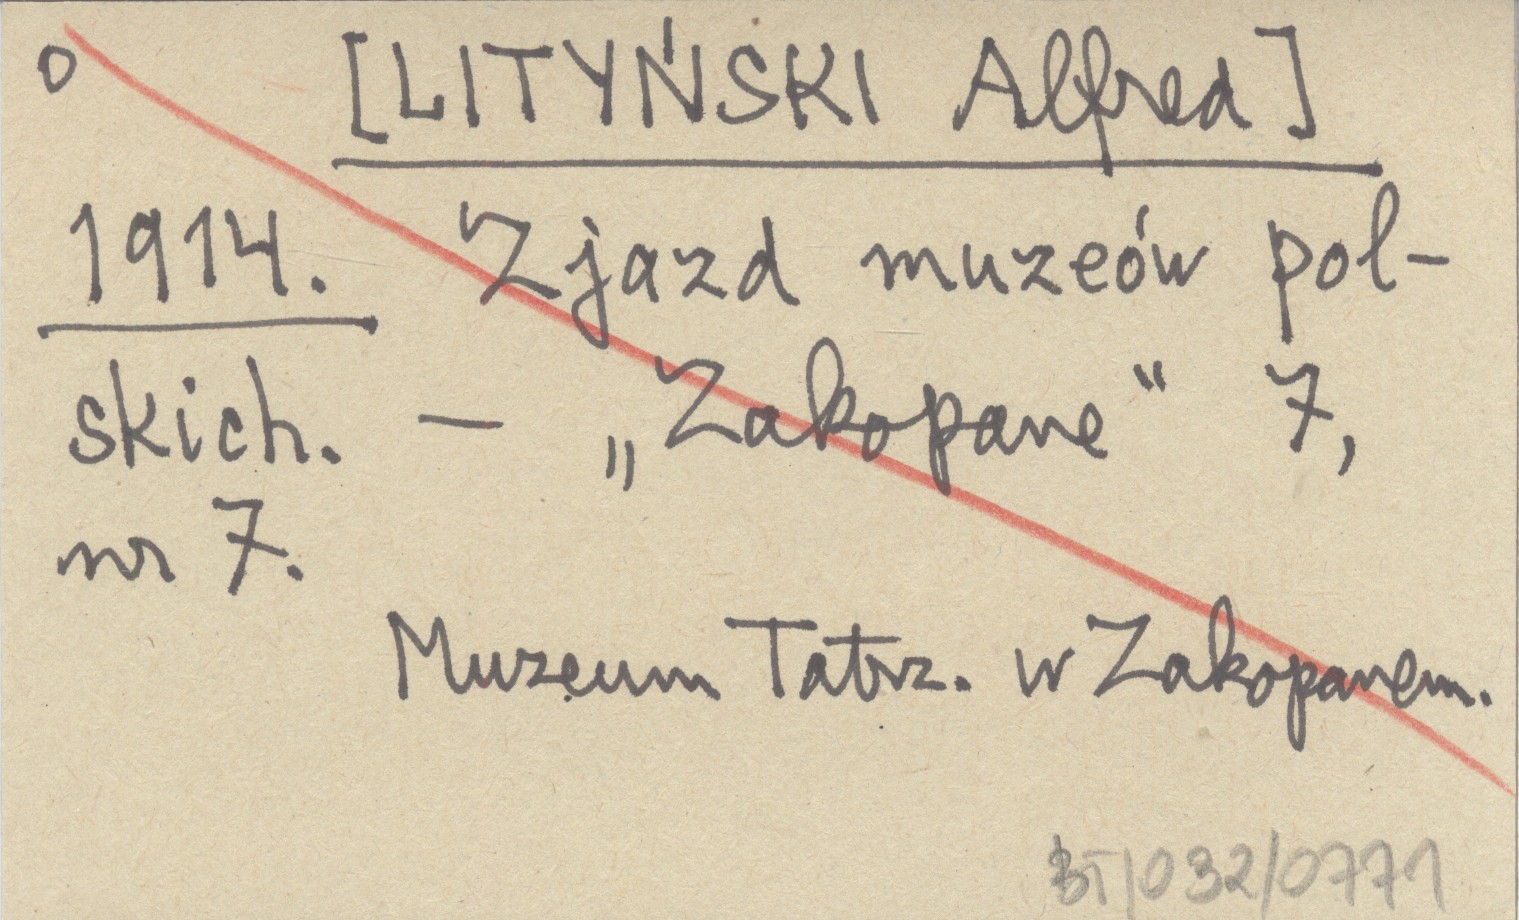 o [LITYŃSKI Alfred]
1914. Zjazd muzeów pol-
skich. — „Zakopane“ 7,
nr 7.
Muzeum Tatrz. w Zakopanem.
BT/032/0771